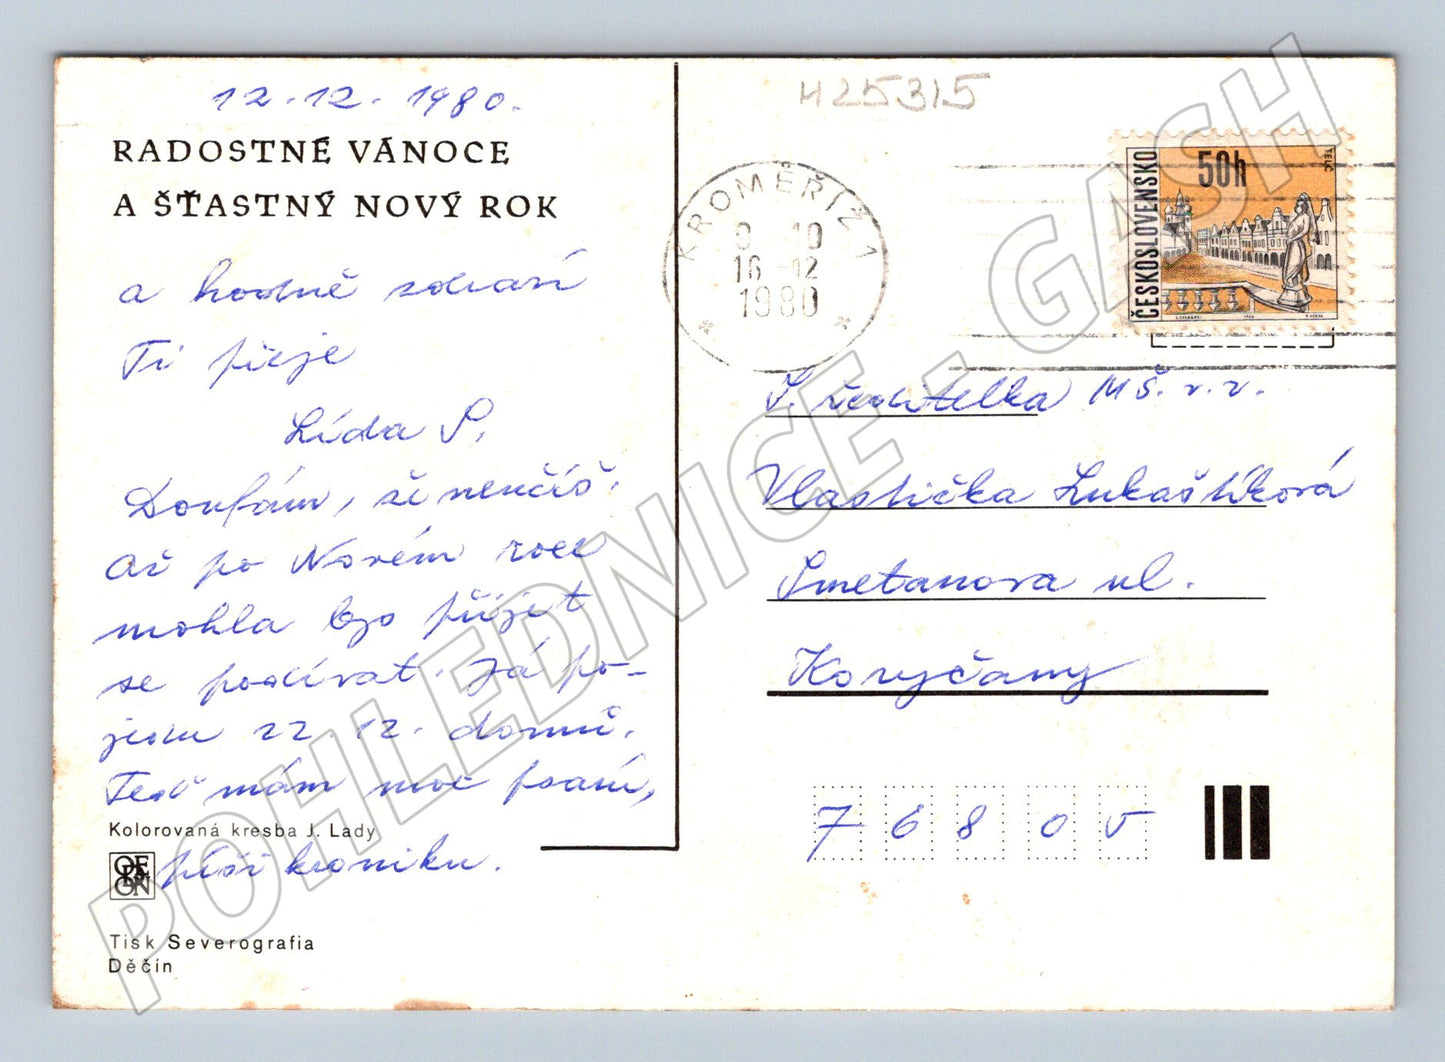 12.12. 1980.
RADOSTNÉ VÁNOCE
A ŠŤASTNÝ NOVÝ ROK
a hodně zdraví
Ti přeje
Lída P.
Doufám, že nenčíš.
Až po Novém roce
mohla bys přijet
se podívat. Já po-
jedu 22 12. domů.
Teď mám moc psaní,
píši kroniku.
Kolorovaná kresba J. Lady
ODEON
Tisk Severografia
Děčín
H25315
KROMĚŘÍŽ 1
10
16 -12
1980
ČESKOSLOVENSKO
50h
TELČ
Š. ředitelka MŠ. v.v.
Vlastička Lukaštíková
Smetanova ul.
Koryčany
7 6 8 0 5
POHLEDNICE - GASH